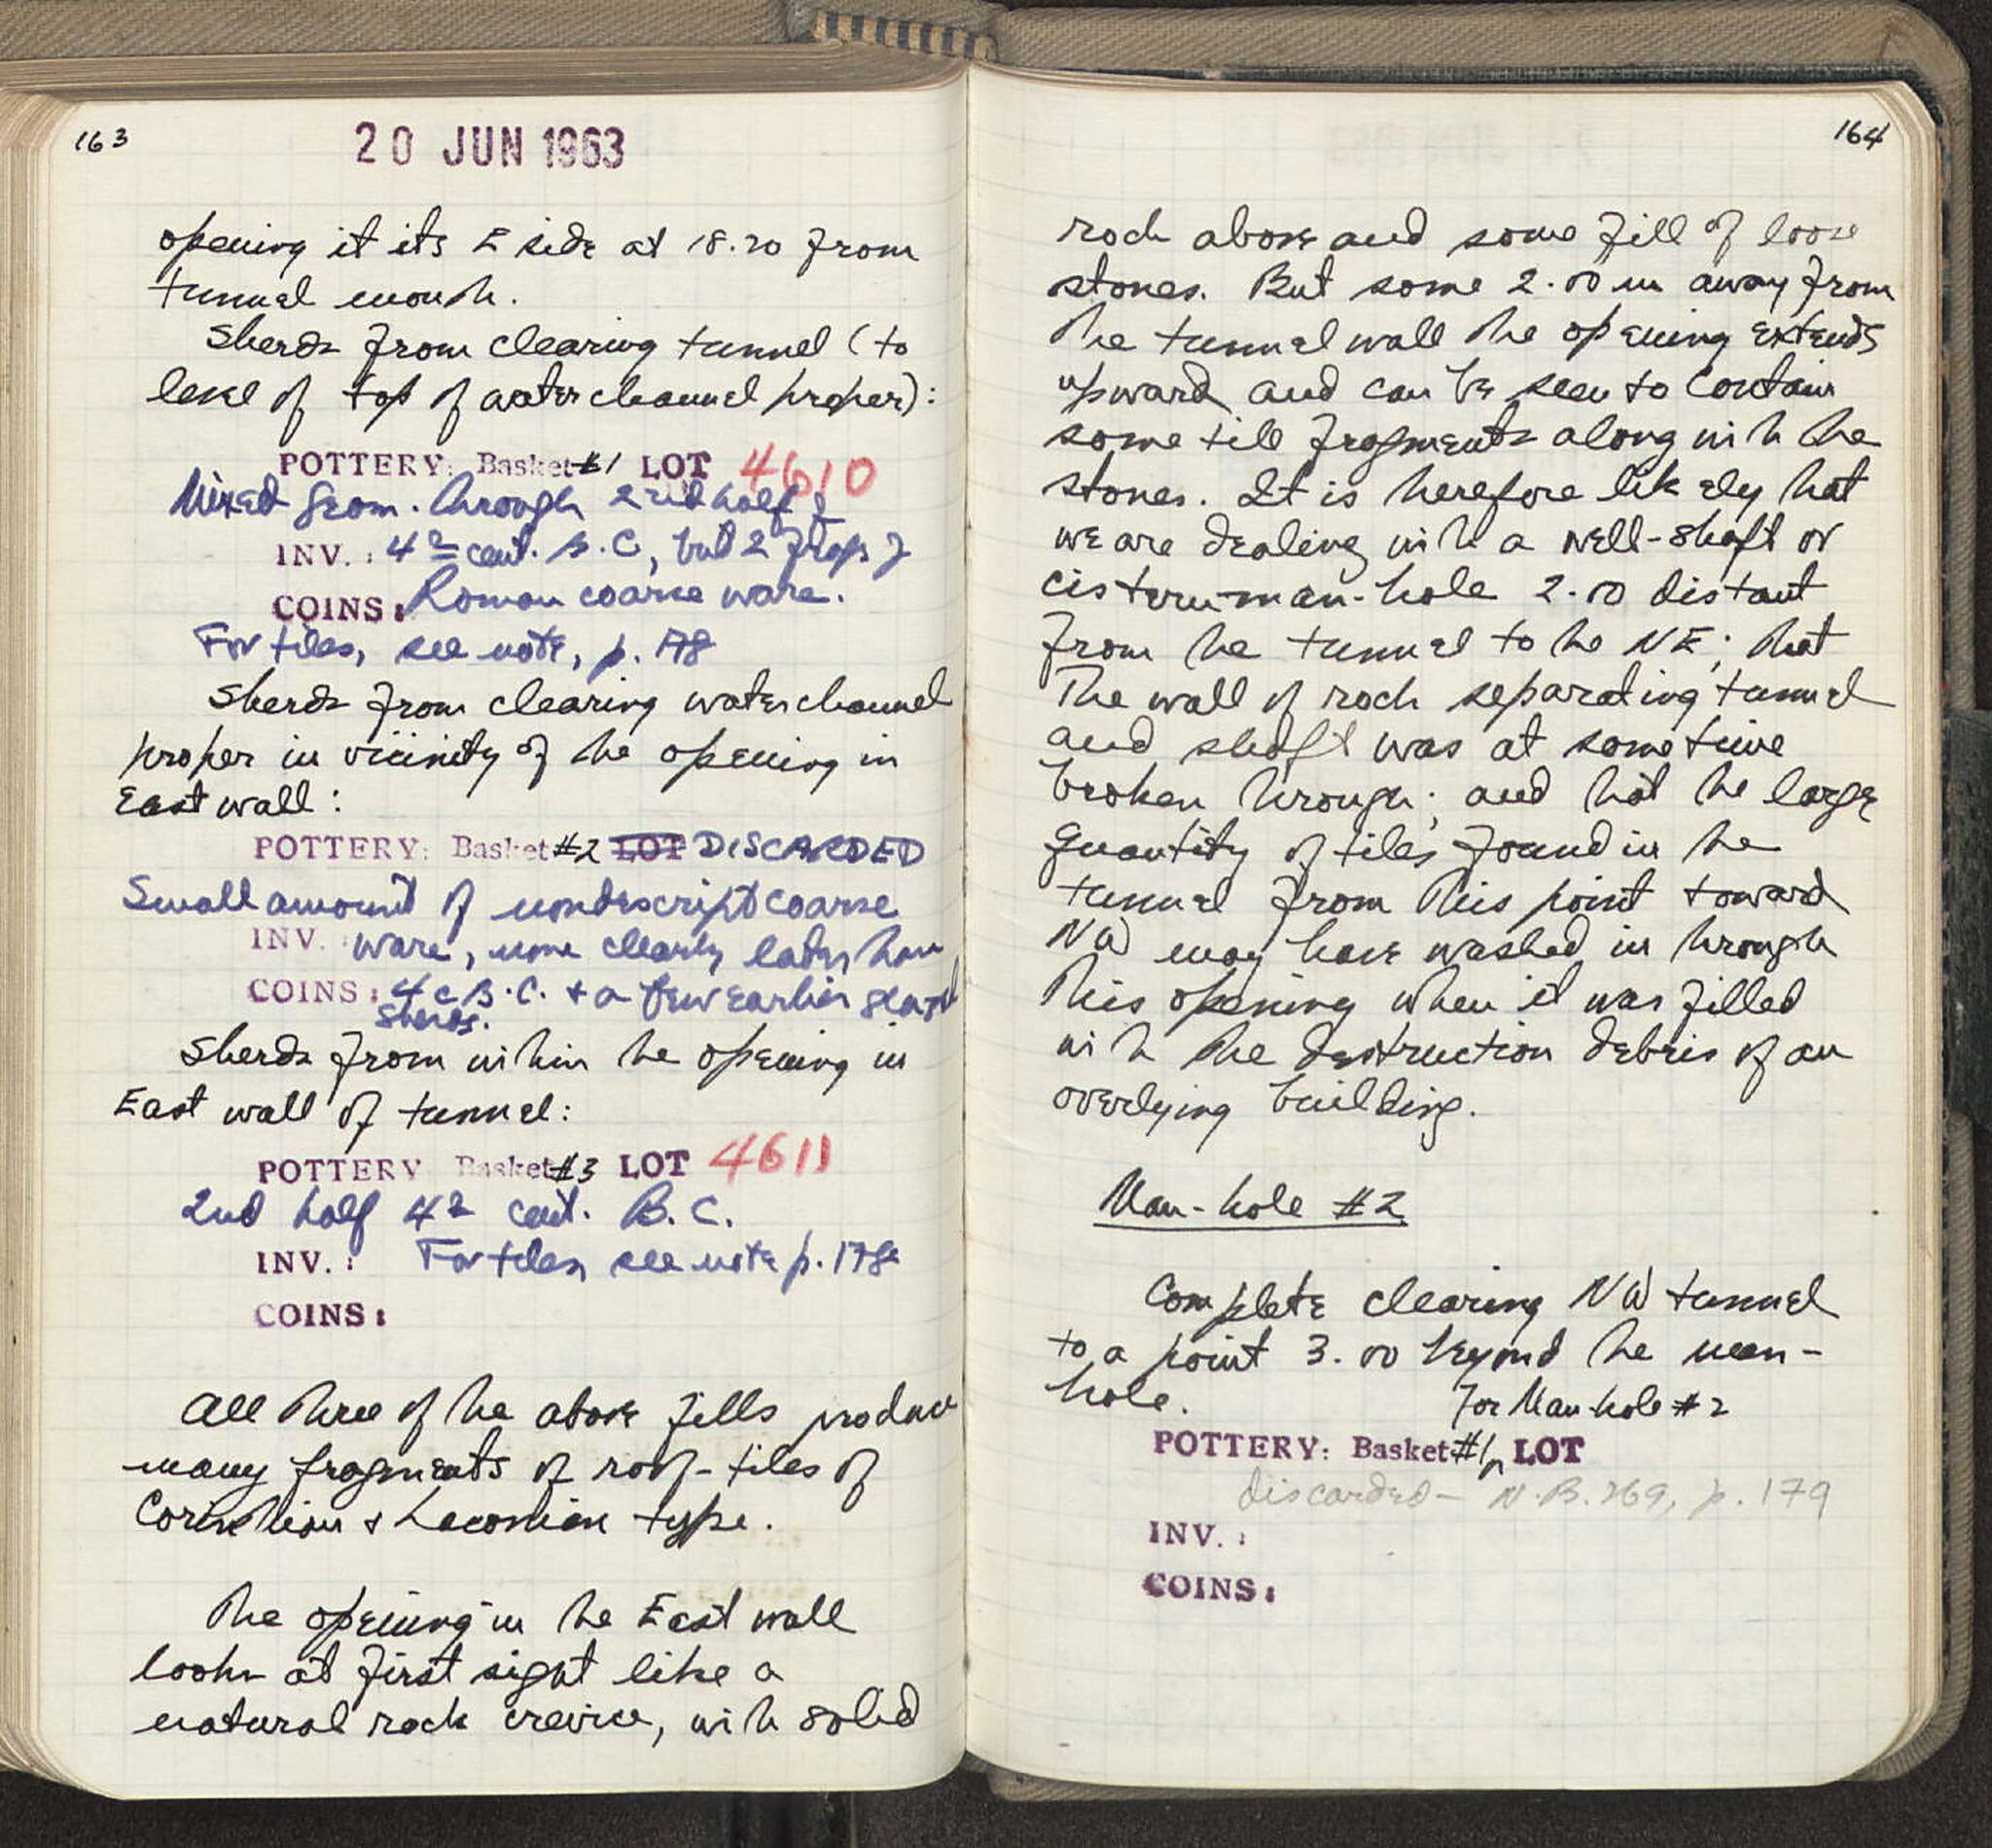 163
20 JUN 1963
opening it its E side at 18.20 from
tunnel mouth.
Sherds from clearing tunnel (to
level of top of waterchannel proper):
POTTERY: Basket #1 LOT 4610
Mixed Geom. through 2nd half of
INV. : 4th cent. B.C., but 2 frags of
COINS: Roman coarse ware.
For tiles, see note, p. 178
Sherds from clearing waterchannel
proper in vicinity of the opening in
East wall:
POTTERY: Basket #2 LOT DISCARDED
Small amount of nondescript coarse
INV. : ware, none clearly later than
COINS: 4 c B.C. + a few earlier glazed
sherds.
Sherds from within the opening in
East wall of tunnel:
POTTERY Basket #3 LOT 4611
2nd half 4th cent. B.C.
INV. : For tiles, see note p. 178
COINS:
All three of the above fills produce
many fragments of roof-tiles of
Corinthian & Laconian type.
The opening in the East wall
looks at first sight like a
natural rock crevice, with solid
164
rock above and some fill of loose
stones. But some 2.00 m away from
the tunnel wall the opening extends
upward and can be seen to contain
some tile fragments along with the
stones. It is therefore likely that
we are dealing with a well-shaft or
cistern-man-hole 2.00 distant
from the tunnel to the NE; that
the wall of rock separating tunnel
and shaft was at some time
broken through; and that the large
quantity of tiles found in the
tunnel from this point toward
NW may have washed in through
this opening when it was filled
with the destruction debris of an
overlying building.
Man-hole #2
Complete clearing NW tunnel
to a point 3.00 beyond the man-
hole.
for Man-hole #2
POTTERY: Basket #1 LOT
discarded - N.B. 269, p. 179
INV. :
COINS: